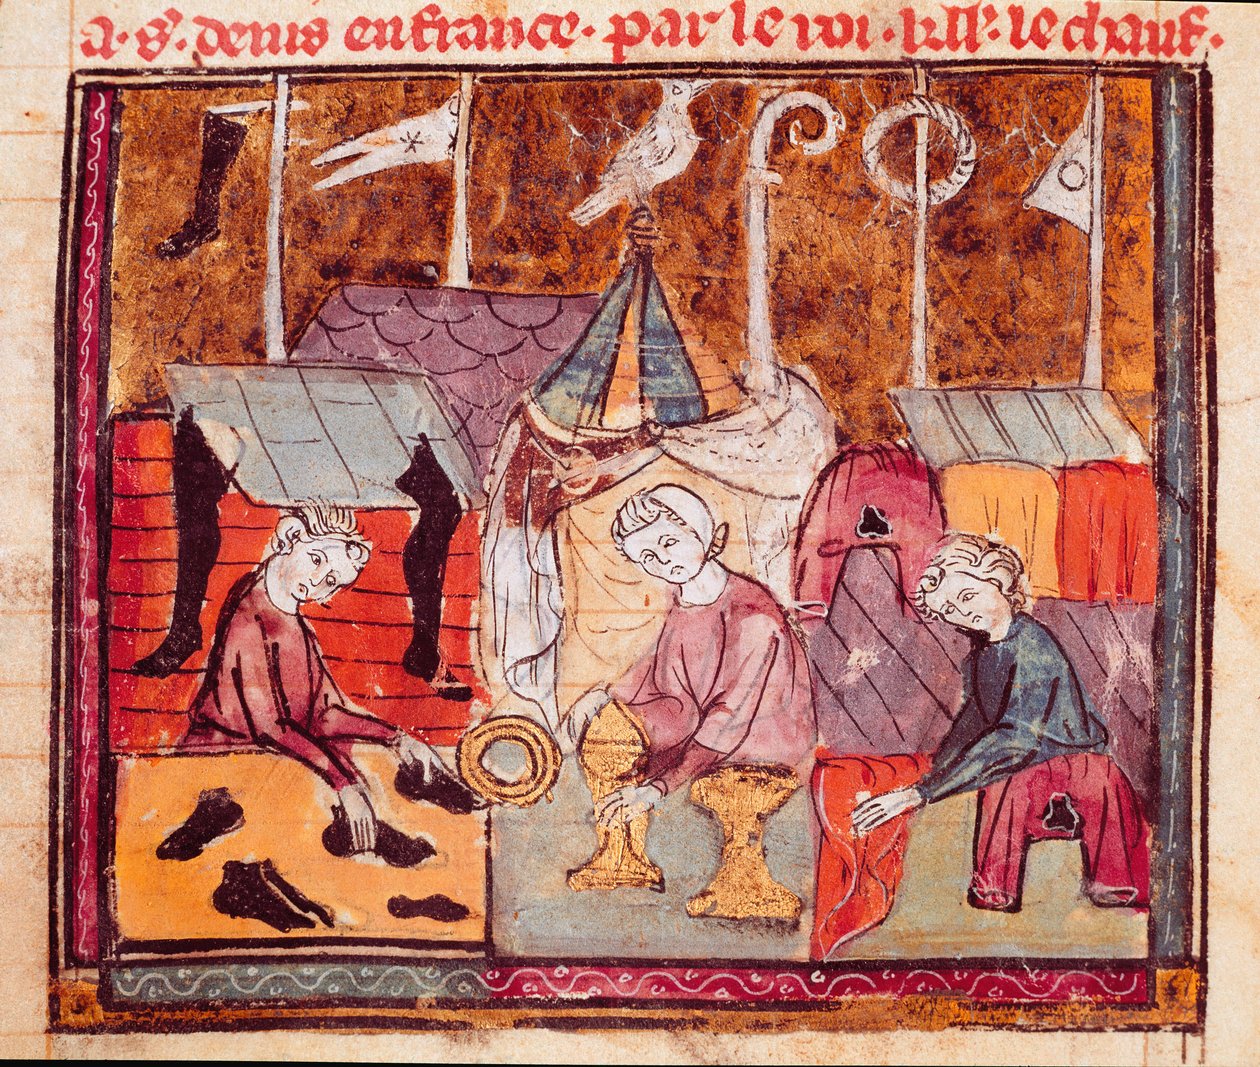 a · S'. denis en france · par le roi · kll's · le chauf ·